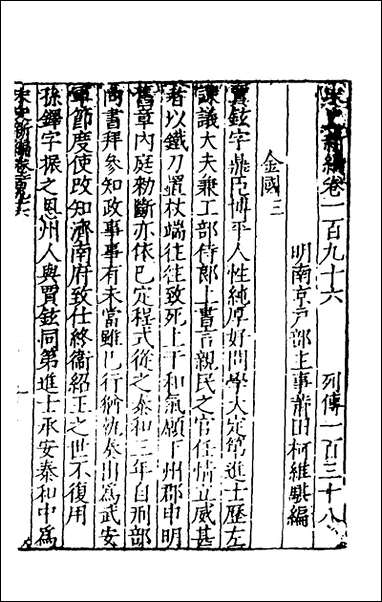 宋史新編卷一百九十六　列傳一百三十八
明南京戶部主事莆田柯維騏編
金國三
賈鉉字鼎臣博平人性純厚好問學大定第進士歷左
諫議大夫兼工部侍郎上書言親民之官任情立威甚
者以鐵刀置杖端往往致死上干和氣願下州郡申明
舊章內庭勑斷亦依已定程式從之泰和三年自刑部
尚書拜參知政事事有未當雖已行猶執奏出為武安
軍節度使改知濟南府致仕終衞紹王之世不復用
孫鐸字振之恩州人與賈鉉同第進士承安泰和中為
宋史新編卷一百九十六
一